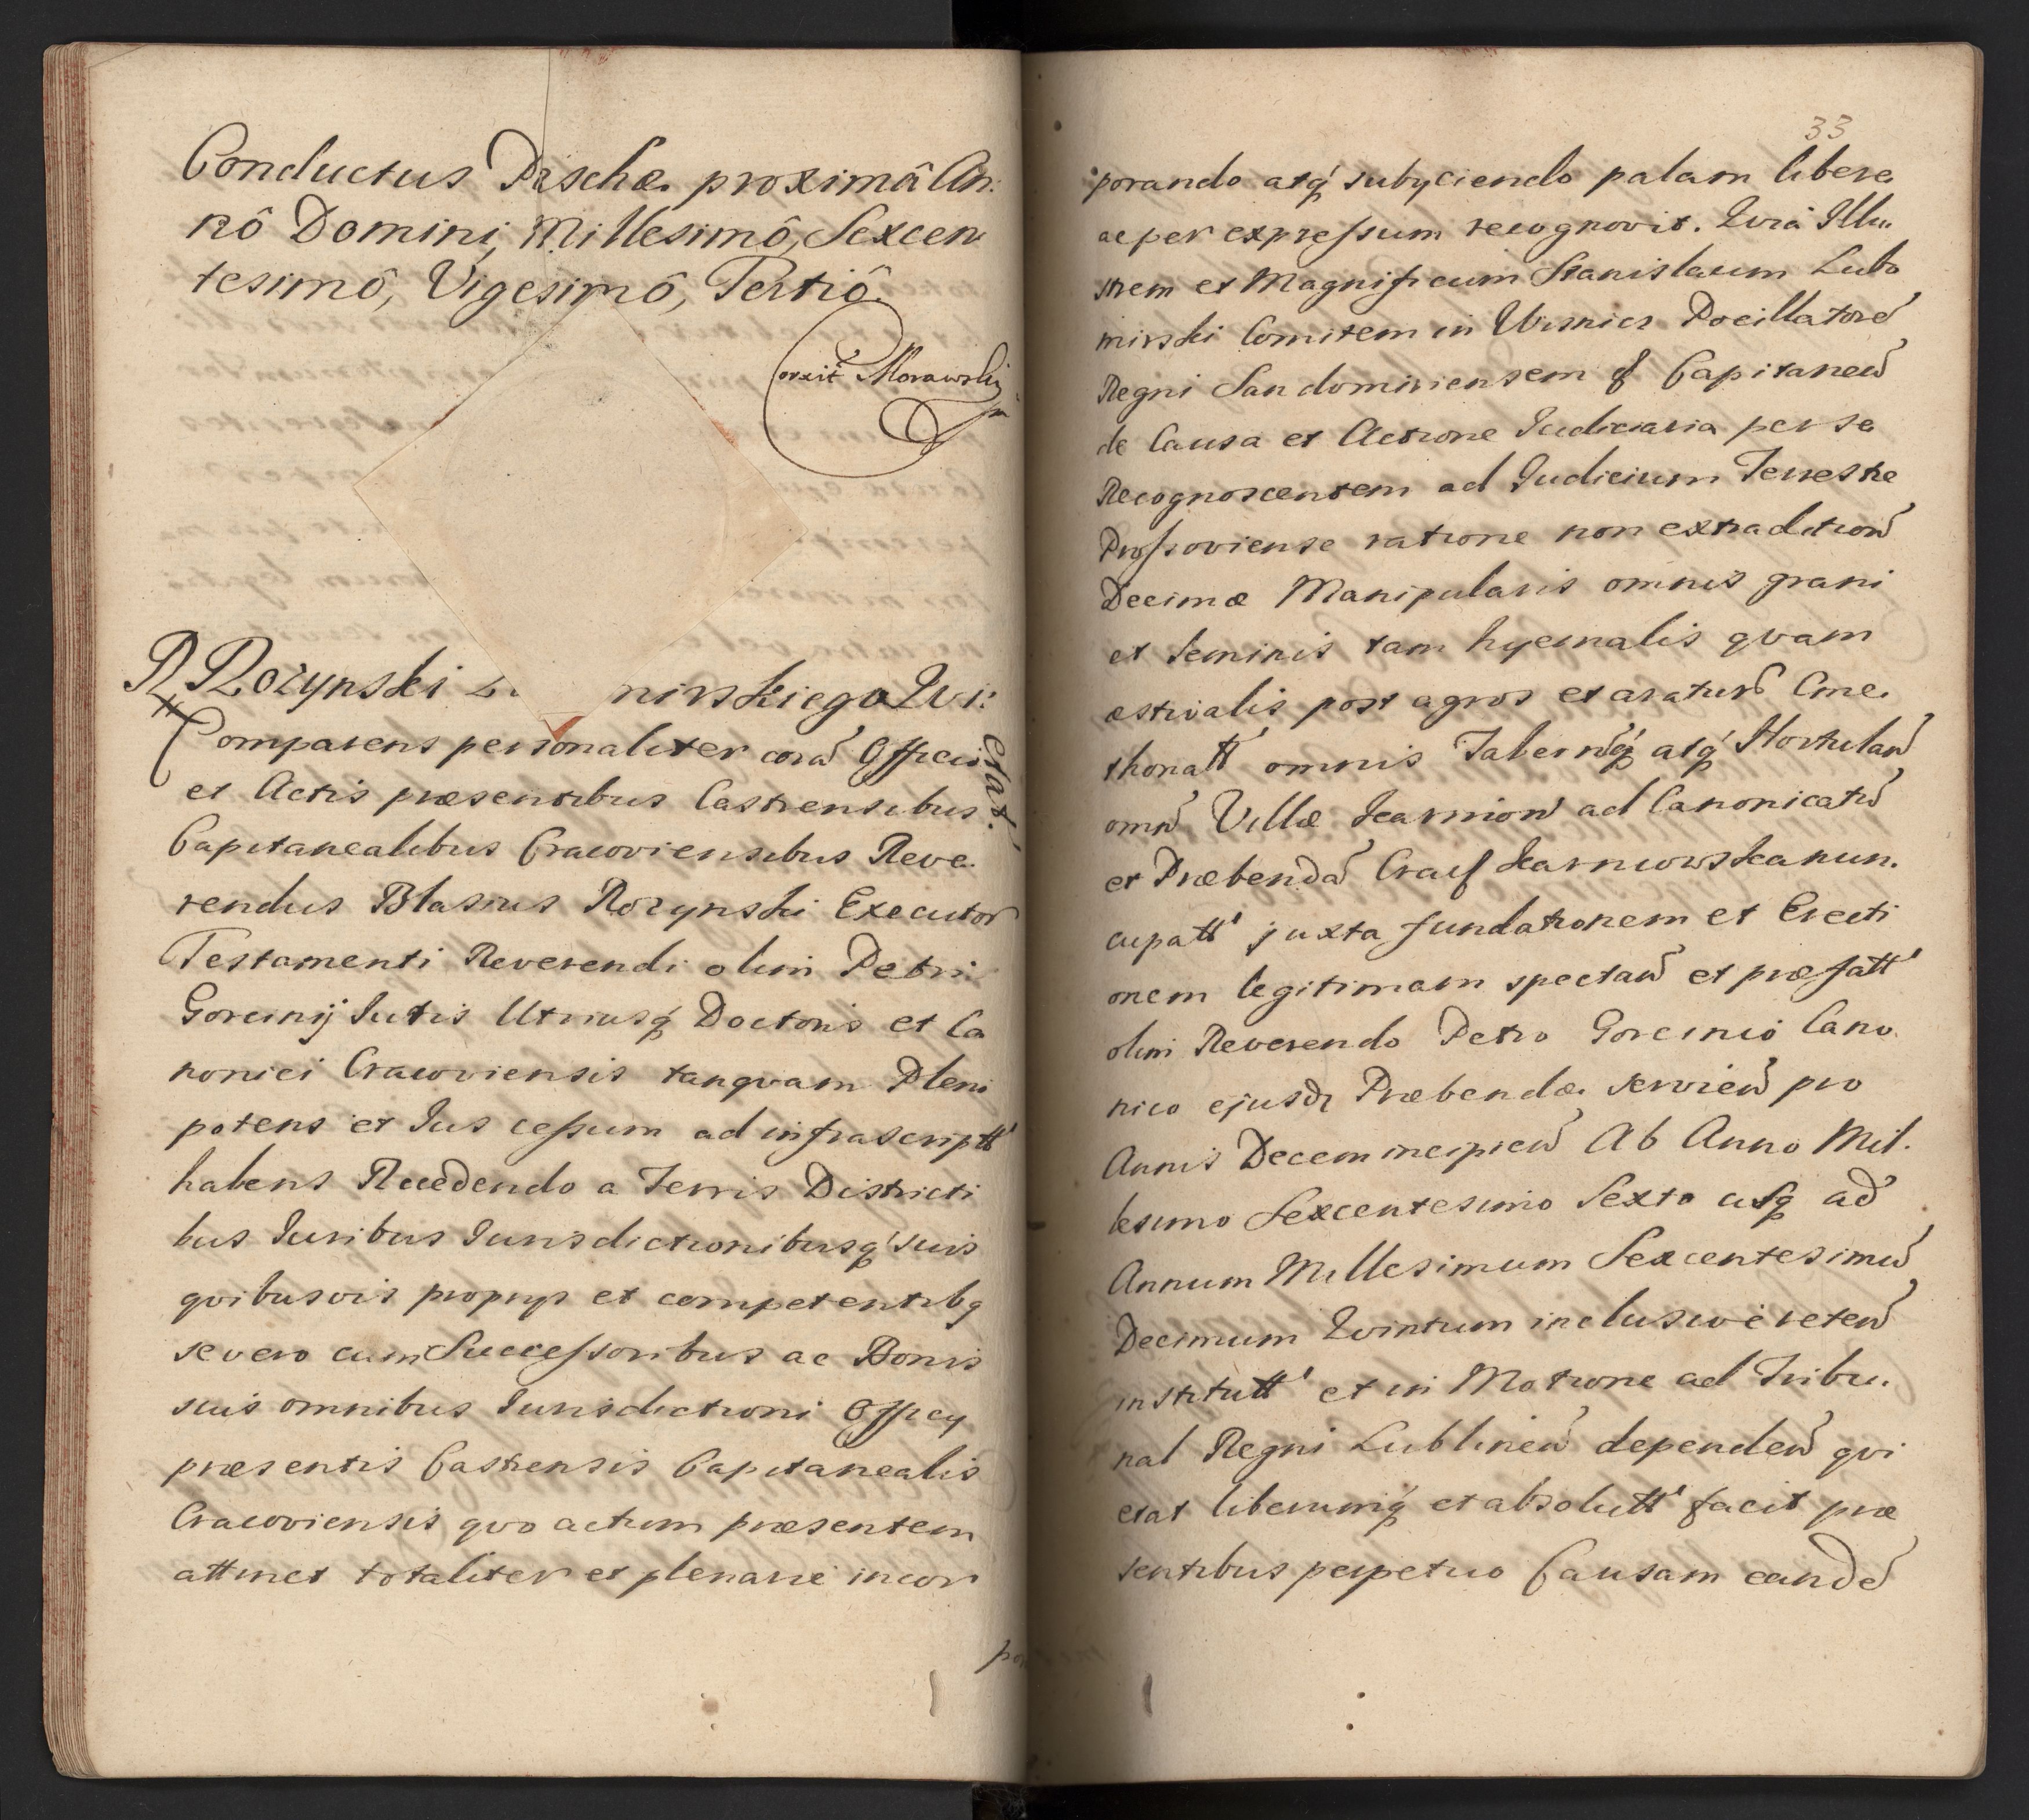 Conductus Paschæ proximâ An:
nô Domini, Millesimô, Sexcen
tesimô, Vigesimô, Tertiô.
Correxit Morawski
R Rożynski nirskiego Qvi:
etat.
Comparens personaliter corã Officio
et Actis præsentibus Castrensibus
Capitanealibus Cracoviensibus Reve.
rendus Blasius Rozynski Executor
Testamenti Reverendi olim Petri
Gorcinij Iutis Utriusq́ Doctoris et Ca
nonici Cracoviensis tanqvam Pleni
potens et Ius cessum ad infrascriptt'
habens Recedendo a Terris Districti
bus Iuribus Iurisdictionibusq́ suis
qvibusvis proprys et competentibq
se vero cum Successoribus ac Bonis
suis omnibus Iurisdictioni Officy
præsentis Castrensis Capitanealis
Cracoviensis qvo actum præsentem
attinet totaliter et plenarie incor
po
33
porando atq́ subyciendo palam libere
ac per expressum recognovit. Qvia Illu..
strem et Magnificum Stanislaum Lubo
mirski Comitem in Wisnicz Pocillatorẽ
Regni Sandomiriensem & Capitaneũ
de Causa et Actione Iudiciaria per se
Recognoscentem ad Iudicium Terrestre
Prossoviense ratione non extraditioñ
Decimæ Manipularis omnis grani
et Seminis tam hyemalis qvam
æstivalis post agros et araturas Cme.
thonatt' omnis Tabernq́ atq́ Hortulañ
omñ Villæ Karnioñ ad Canonicatũ
et Præbendã Cracs Karniowska nun.
cupatt' juxta fundationem et Erecti
onem legitimam spectañ et præfatt'
olim Reverendo Petro Gorcinio Cano.
nico ejusdꝫ Præbendæ servieñ pro
Annis Decem incipieñ Ab Anno Mil.
lesimo Sexcentesimo Sexto usq ad
Annum Millesimum Sexcentesimũ
Decimum Qvintum inclusivè reteñ
institutt' et in Motione ad Tribu.
nal Regni Lublineñ dependeñ qvi
etat liberumq́ et absolutt' facit præ
sentibus perpetuo Causam eandẽ